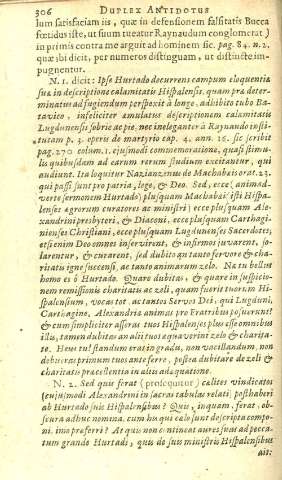 306 DUPLEX ANTIDOTUS
lum satisfaciam iis, quæ in defensionem falsitatis Bucca
fœtidus iste, ut suum tueatur Raynaudum conglomerat)
in primis contra me arguit ad hominem sic. pag. 84. n. 2.
quæ ibi dicit, per numeros distinguam, ut distincte im-
pugnentur.
N. 1. dicit: Ipse Hurtado decurrens campum eloquentiæ
suæ in descriptione calamitatis Hispalensis. quam præ deter-
minatius ad fugiendum perspexit à longe, adhibito tubo Ba-
tavico, infeliciter æmulatus descriptionem calamitatis
Lugdunensis sobriè ac piè, nec ineleganter à Raynaudo insti-
tutam p. 3. operis de martyrio cap. 4. ann. 16. sic scribit
pag. 270. colum. 1. ejusmodi commemoratione, quasi stimu-
lis quibusdam ad earum rerum studium excitantur, qui
audiunt. Ita loquitur Nazianzenus de Machabæis orat. 23.
qui passi sunt pro patria, lege, & Deo. Sed, ecce (animad-
verte sermonem Hurtado) plusquam Machabæi isti Hispa-
lenses ægrorum curatores ac ministri; ecce plusquam Ale-
xandrini presbyteri, & Diaconi, ecce plusquam Carthagi-
nienses Christiani, ecce plusquam Lugdunenses Sacerdotes,
etsi enim Deo omnes inservirent, & infirmos juvarent, so-
larentur, & curarent, sed dubito an tanto fervore & cha-
ritatis igne succensi, ac tanto animarum zelo. Na tu bellus
homo es ô Hurtado. Quare dubitas, & quare in suspicio-
nem remissionis charitatis ac zeli, quam fuerit tuorum Hi-
spalensium, vocas tot ac tantos Servos Dei, qui Lugduni,
Carthagine, Alexandriæ animas pro Fratribus posuerunt?
& cum simpliciter asseras tuos Hispalenses plus esse omnibus
illis, tamen dubitas an alii tuos æquaverint zelo & charita-
te. Heus tu! standum eras in gradu, non vacillandum. non
debueras primum tuos anteferre, postea dubitare de zeli &
charitatis præcellentia in alius adæquatione.
N. 2. Sed quis ferat (prosequitur) calites vindicatos
(ejusmodi Alexandrini in sacras tabulas relati) posthaberi
ab Hurtado suis Hispalensibus? Quis, inquam, ferat, ob-
scura adhuc nomina, cum his qui cælo sunt descripta compo-
ni, imo præferri? At quis non contineat aures suas ad pecca-
tum grande Hurtadi, quis de suis ministris Hispalensibus
ait: